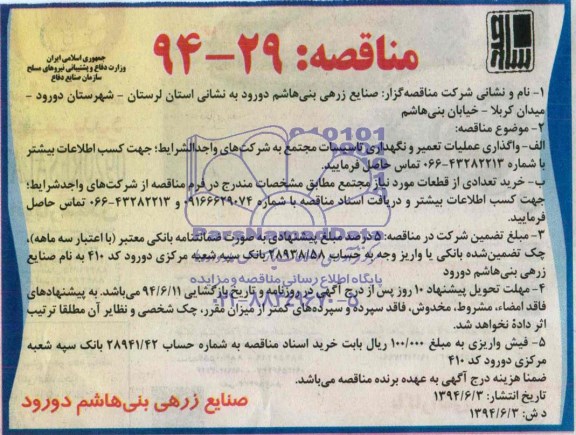 جمهوری اسلامی ایران
وزارت دفاع و پشتیبانی نیروهای مسلح
سازمان صنایع دفاع
مناقصه: ۲۹-۹۴
۱- نام و نشانی شرکت مناقصه‌گزار: صنایع زرهی بنی‌هاشم دورود به نشانی استان لرستان - شهرستان دورود -
میدان کربلا - خیابان بنی‌هاشم
۲- موضوع مناقصه:
الف- واگذاری عملیات تعمیر و نگهداری تاسیسات مجتمع به شرکت‌های واجدالشرایط؛ جهت کسب اطلاعات بیشتر
با شماره ۴۳۲۸۲۲۱۳-۰۶۶ تماس حاصل فرمایید.
ب- خرید تعدادی از قطعات مورد نیاز مجتمع مطابق مشخصات مندرج در فرم مناقصه از شرکت‌های واجدشرایط؛
جهت کسب اطلاعات بیشتر و دریافت اسناد مناقصه با شماره ۰۹۱۶۶۶۲۹۰۷۴ و ۴۳۲۸۲۲۱۳-۰۶۶ تماس حاصل
فرمایید.
۳- مبلغ تضمین شرکت در مناقصه: ۵ درصد مبلغ پیشنهادی به صورت ضمانتنامه بانکی معتبر (با اعتبار سه ماهه)،
چک تضمین‌شده بانکی یا واریز وجه به حساب ۲۸۹۳۸/۵۸ بانک سپه شعبه مرکزی دورود کد ۴۱۰ به نام صنایع
زرهی بنی‌هاشم دورود
۴- مهلت تحویل پیشنهاد ۱۰ روز پس از درج آگهی در روزنامه و تاریخ بازگشایی ۹۴/۶/۱۱ می‌باشد. به پیشنهادهای
فاقد امضاء، مشروط، مخدوش، فاقد سپرده و سپرده‌های کمتر از میزان مقرر، چک شخصی و نظایر آن مطلقا ترتیب
اثر داده نخواهد شد.
۵- فیش واریزی به مبلغ ۱۰۰/۰۰۰ ریال بابت خرید اسناد مناقصه به شماره حساب ۲۸۹۴۱/۴۲ بانک سپه شعبه
مرکزی دورود کد ۴۱۰
ضمنا هزینه درج آگهی به عهده برنده مناقصه می‌باشد.
تاریخ انتشار: ۱۳۹۴/۶/۳
د ش: ۱۳۹۴/۶/۳
صنایع زرهی بنی‌هاشم دورود
ParsNamadData
پایگاه اطلاع رسانی مناقصه و مزایده